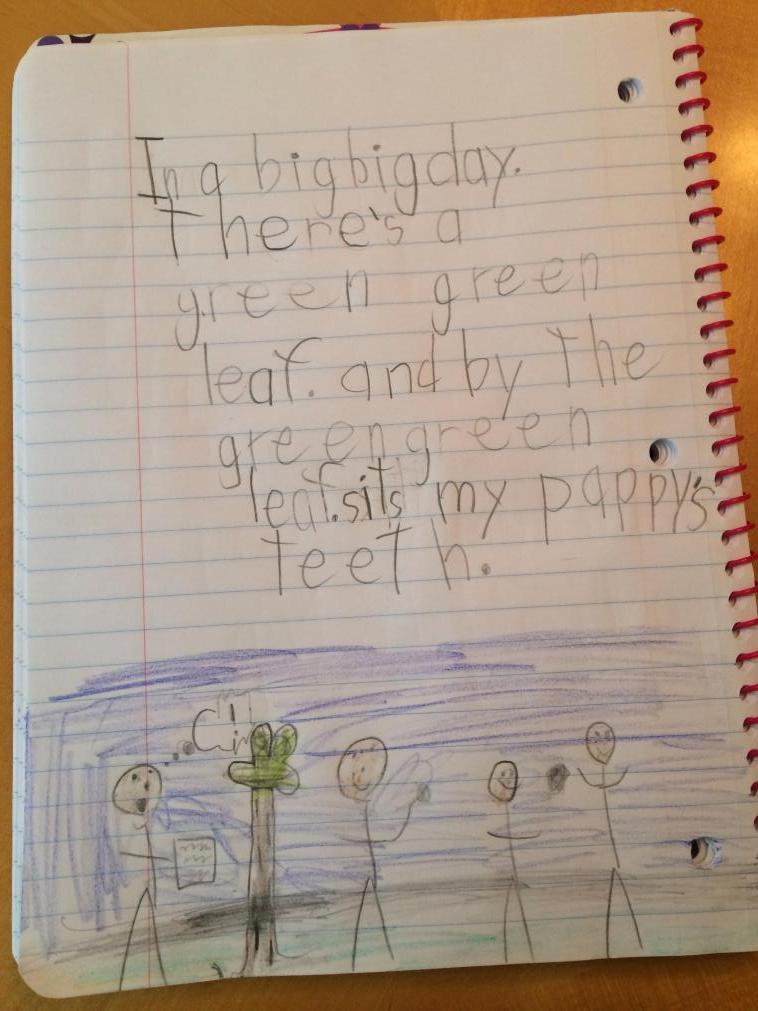 In a big big day.
There's a
green green
leaf. and by the
green green
leaf. sits my pappy's
teeth.